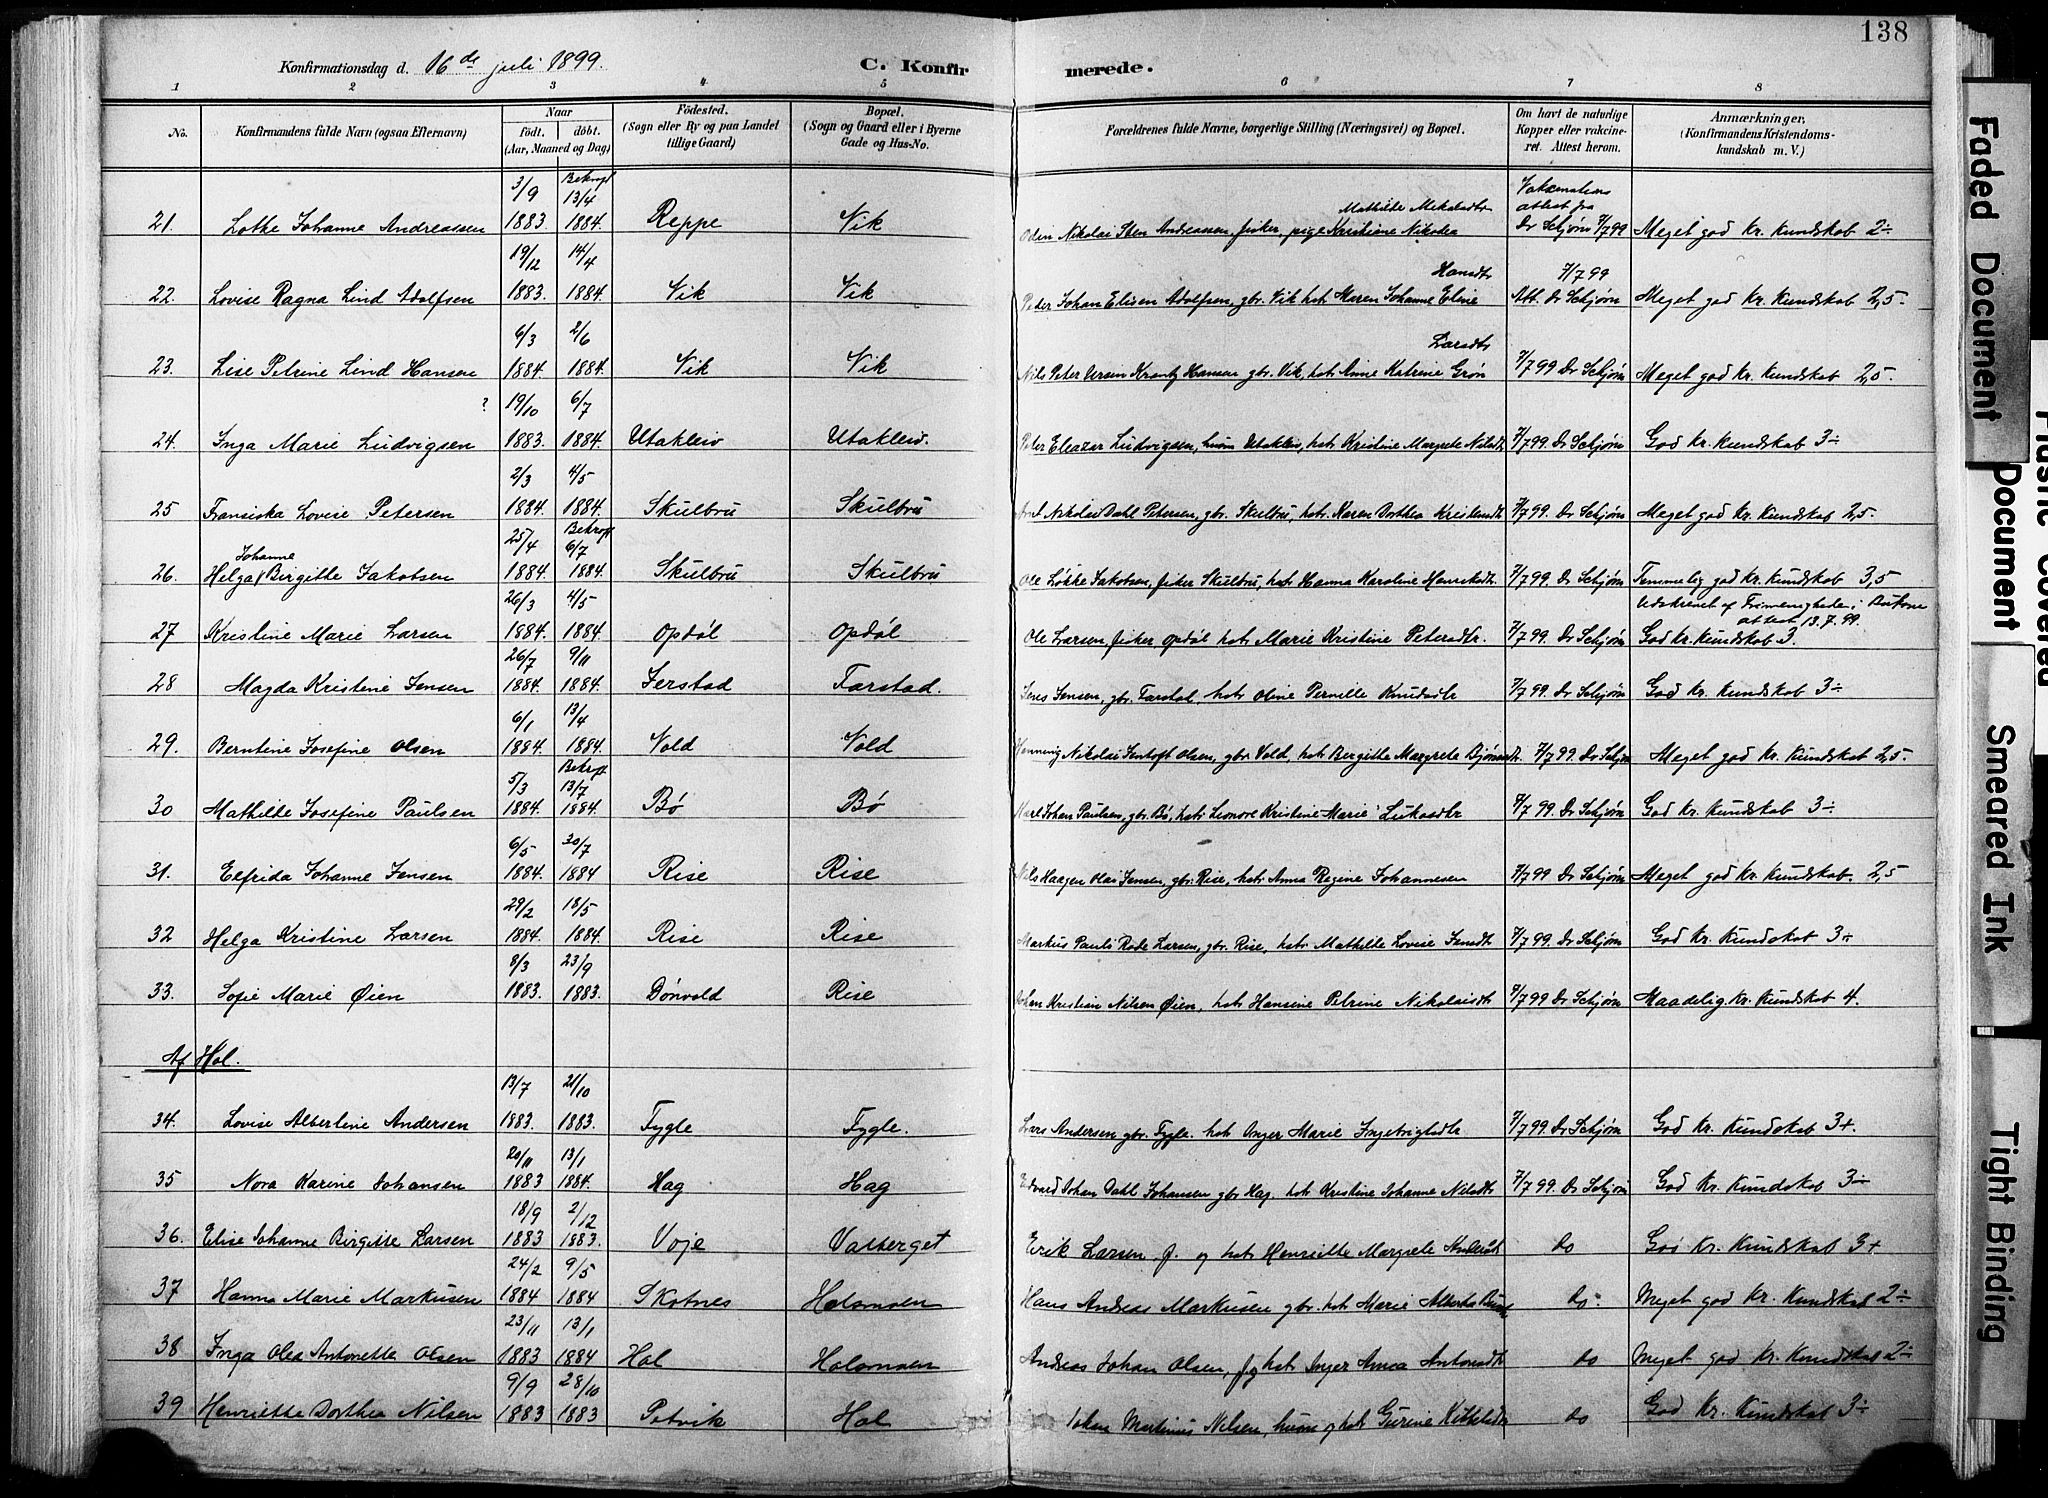 138
Konfirmationsdag d. 16de juli 1899.
C. Konfir merede.
1 2 3 4 5 6 7 8
No.
Konfirmandens fulde Navn (ogsaa Efternavn)
Naar
født. døbt.
(Aar, Maaned og Dag)
Fødested.
(Sogn eller By og paa Landet
tillige Gaard)
Bopæl.
(Sogn og Gaard eller i Byerne
Gade og Hus-No.
Forældrenes fulde Navne, borgerlige Stilling (Næringsvei) og Bopæl.
Om havt de naturlige
Kopper eller vakcine-
ret. Attest herom.
Anmærkninger,
(Konfirmandens Kristendoms-
kundskab m. V.)
3/9 13/4
21. Lotke Johanne Andreassen 1883 1884. Reppe Vik Odin Nikolai Sten Andreassen, fisker, pige Kristiane Nikolea Mathilde attest fra Dr Schjøm 7/7 99 Meget god Kr. Kundskab 2÷
19/12 14/4
22. Lovise Ragna Lind Adolfsen 1883. 1884. Vik Vik Peter Johan Elisen Adolfsen, gbr. Vik, hst. Maren Johanne Eline Hansdtr 7/7 99 Att. Dr Schjøm Meget god Kr. Kundskab 2,5.
6/3 2/6
23. Lise Petrine Lind Hansen 1884. 1884. Vik Vik Nils Peter Krantz Hansen gbr. Vik, hst. Anne Katrine Grøn Larsdtr 7/7 99 Dr Schjøm Meget god Kr. Kundskab 2,5.
? 19/10 6/7
24. Inga Marie Ludvigsen 1883. 1884. Utakleiv Utakleiv. Peter Eleazar Ludvigsen, huusm. Utakleiv, hst. Kristine Margrete Nilsdtr 7/7 99. Dr Schjøm God Kr. Kundskab 3÷
2/3 4/5
25 Fransiska Lovise Petersen 1884. 1884. Skulbru Skulbru Nikolai Dahl Petersen, gbr. Skulbru, hst. Karen Dorthea 7/7 99. Dr Schjøm Meget god Kr. Kundskab 2,5.
25/4 6/7
26. Helga Johanne Birgitte Jakobsen 1884. 1884. Skulbru Skulbru Ole Løkke Jakobsen, fisker Skulbru, hst. Hanna Karoline 7/7 99. Dr Schjøm Temmelig god Kr. Kundskab 3,5
26/3 4/5
27 Kristine Marie Larsen 1884. 1884. Opdøl Opdøl Ole Larsen, fisker, Opdøl hst. Marie Kristine Petersdtr. 7/7 99. Dr Schjøm attest 13.7.99. God Kr. Kundskab 3.
26/7 9/11
28 Magda Kristine Jensen 1884. 1884. Jerstad Farstad. Jens Jensen, gbr. Farstad, hst. Oline Pernille Knudsdtr 7/7 99. Dr Schjøm God Kr. Kundskab 3÷
6/1 13/4
29. Berntine Josefine Olsen 1884. 1884. Vold Vold Henning Nikolai Olsen, gbr. Vold, hst. Bergitte Margrete 7/7 99. Dr Schjøm Meget god Kr. Kundskab 2,5.
5/3 13/7
30 Mathilde Josefine Paulsen 1884. 1884. Bø Bø Karl Johan Paulsen, gbr. Bø, hst. Leonore Kristine Marie Lukasdtr 7/7 99. Dr Schjøm God Kr. Kundskab 3÷
6/5 30/7
31. Elfrida Johanne Jensen 1884. 1884 Rise Rise Nils Haagen Olai Jensen, gbr. Rise, hst. Anna Regine Johannesen 7/7 99 Dr Schjøm Meget god Kr. Kundskab. 2,5
29/2 18/5
32 Helga Kristine Larsen 1884. 1884. Rise Rise Markus Pauli Larsen, gbr. Rise, hst. Mathilde Lovise Jensdtr 7/7 99. Dr Schjøm God Kr. Kundskab 3+
8/3 23/9
33. Sofie Marie Øien 1883. 1883. Dønvold Rise Johan Kristian Nilsen Øien, hst. Hansine Petrine Nikolaisdtr 7/7 99 Dr Schjøm Maadelig. Kr. Kundskab 4.
Af Hol.
13/7 21/10
34. Lovise Albertine Andersen 1883. 1883. Fygle Fygle. Lars Andersen gbr. Fygle. hst. Inger Marie Ingebrigtsdtr 7/7 99. Dr Schjøm God Kr. Kundskab 3+.
20/11 13/1
35 Nora Karine Johansen 1883 1884. Hag Hag Edvard Johan Dahl Johansen gbr. Hag, hst. Kristine Johanne Nilsdtr 7/7 99. Dr Schjøm God Kr. Kundskab 3÷
18/9 2/12
36. Elise Johanne Birgitte Larsen 1883 1883. Voje Valberget Erik Larsen f. og hst. Henriette Margrete do God Kr. Kundskab 3+
24/2 9/5
37 Hanna Marie Markusen 1884 1884 Skotnes Holsmoen Hans Andreas Markusen gbr. hst. Marie Alberta do. Meget god Kr. Kundskab 2÷
23/11 13/1
38 Inga Olea Antonette Olsen 1883 1884 Hol Holsmoen Andreas Johan Olsen, f. og hst. Inger Anna Antonsdtr do Meget god Kr. Kundskab 2÷
9/9 28/10
39 Henriette Dorthea Nilsen 1883 1883 Petvik Hol Johan Martinus Nilsen, huusm. og hst. Gurine do God Kr. Kundskab 3÷
Faded Document
Document
Smeared Ink
Tight Binding